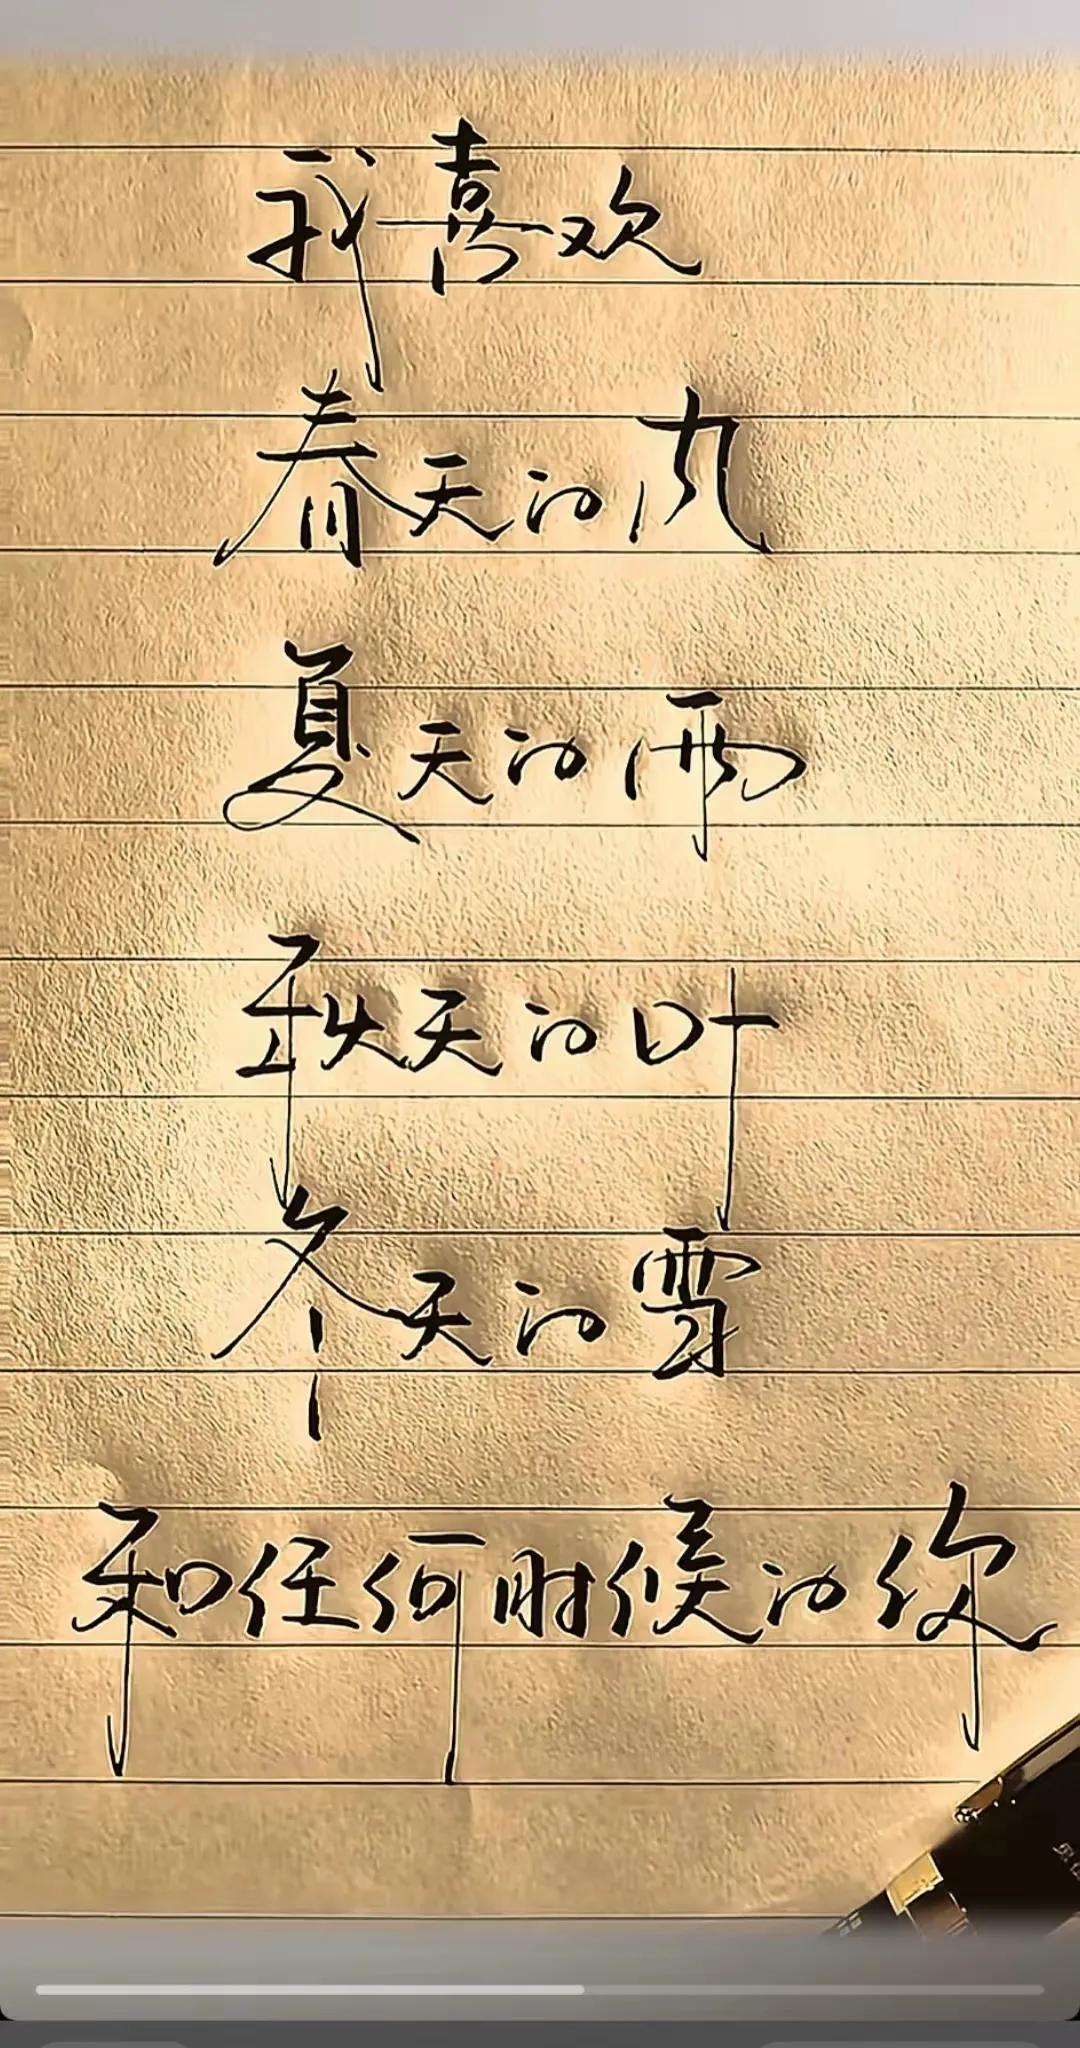 我喜欢
春天的风
夏天的雨
秋天的叶
冬天的雪
和任何时候的你